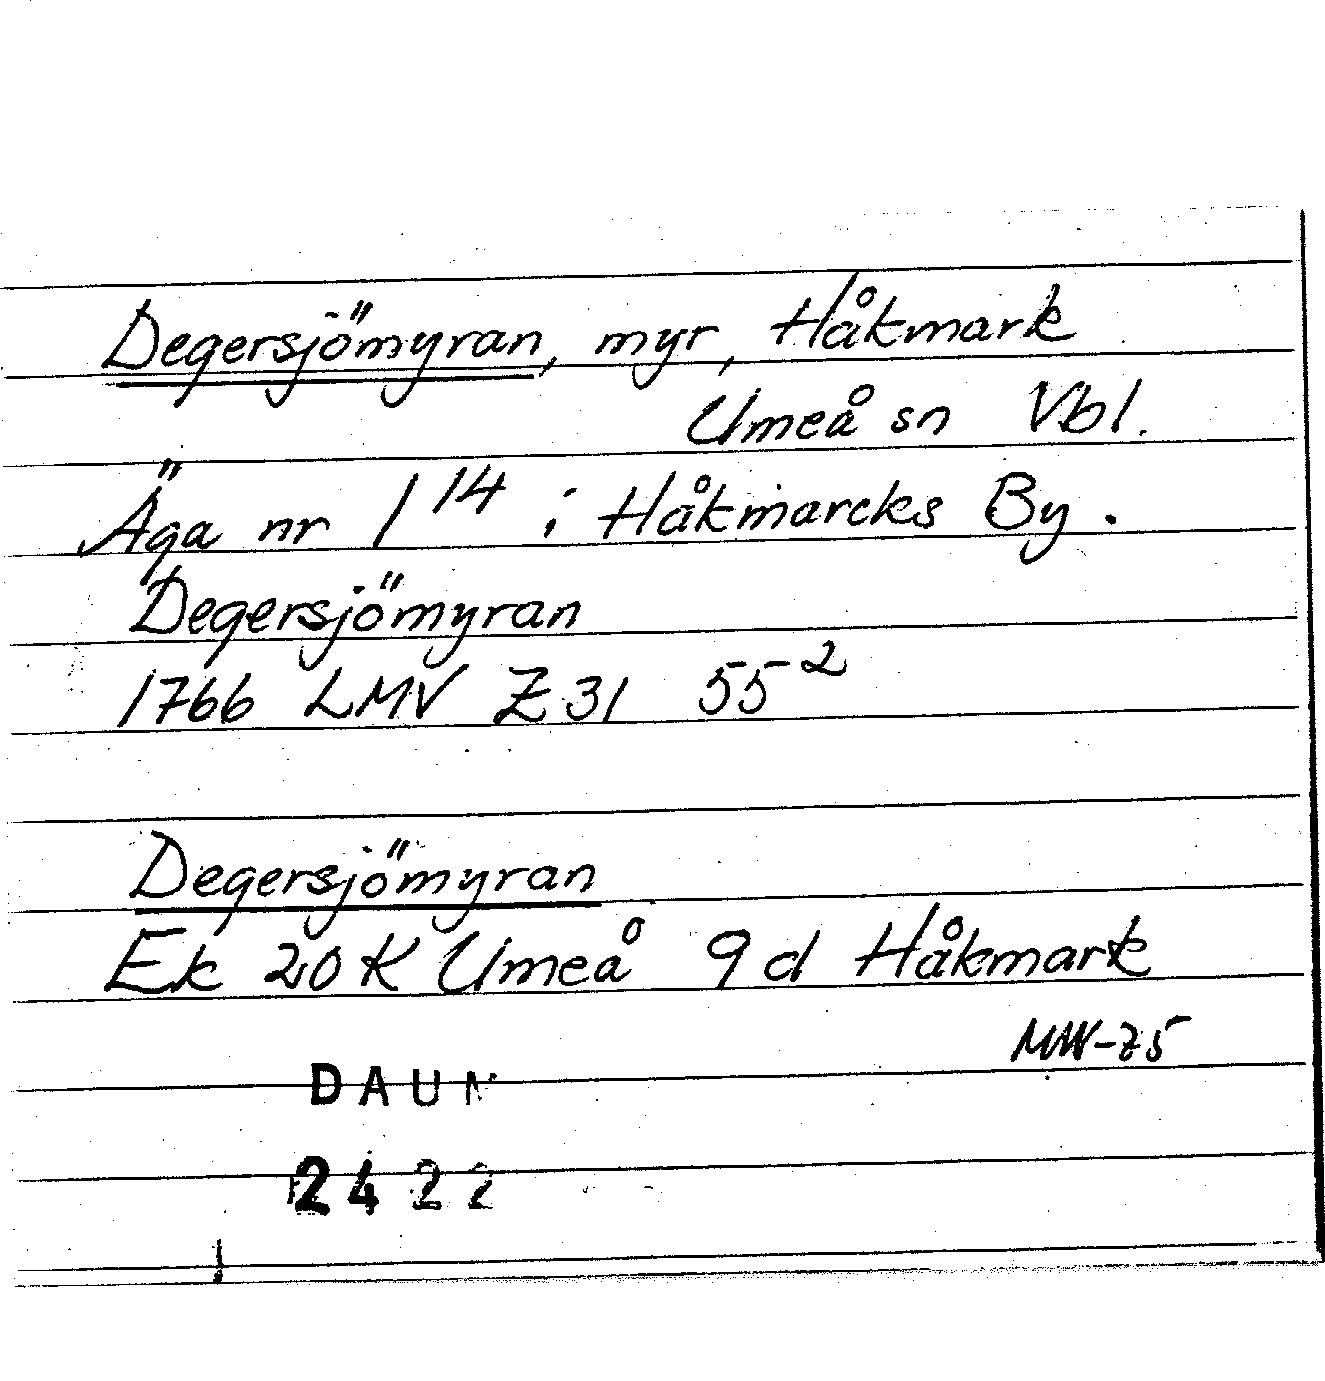 Degersjömyran, myr, Håkmark
Umeå sn Vbl.
Äga nr 1 14 i Håkmarcks By.
Degersjömyran
1766 LMV Z 31 55 2
Degersjömyran
Ek 20 K Umeå 9 d Håkmark
MW-75
DAUM
2422